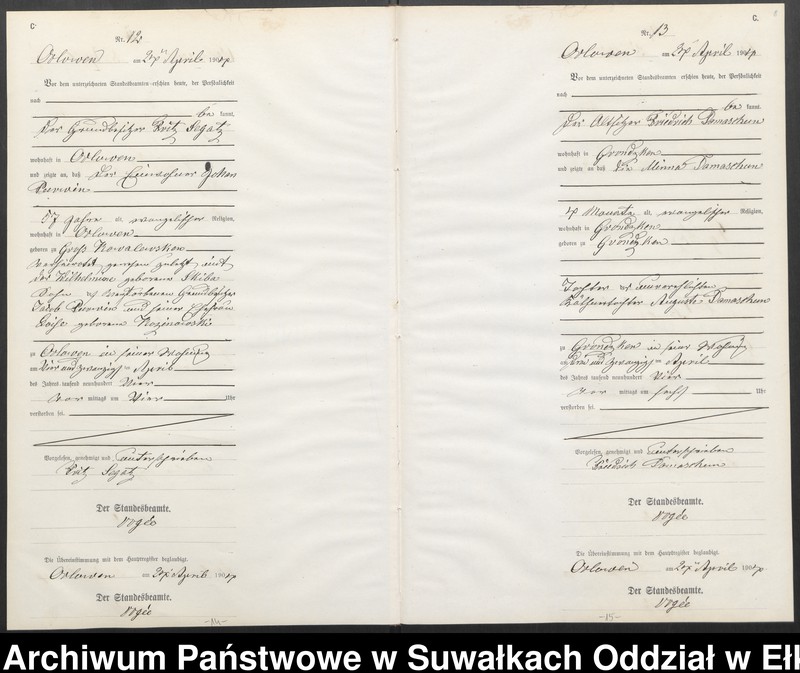 C
Nr. 12
Orlowen am 24ten April 1904
Vor dem unterzeichneten Standesbeamten erschien heute, der Persönlichkeit
nach
be kannt,
der Grundbesitzer Fritz Segatz
wohnhaft in Orlowen
und zeigte an, daß der Einwohner Johan
Purwin
57 Jahre a evangelischer Religion,
wohnhaft in Orlowen
geboren zu Groß Kowalewsken
verheiratet gewesen zuletzt mit
der Wilhelmine geborene Skiba
Sohn des verstorbenen Grundbesitzer
Jacob Purwin und seiner Ehefrau
geborene
zu Orlowen in seiner Wohnung
am Vier und zwanzigsten April
des Jahres tausend neunhundert Vier
Vor mittags um Vier Uhr
verstorben sei.
Vorgelesen, genehmigt und unterschrieben
Fritz Segatz
Der Standesbeamte.
Die Übereinstimmung mit dem Hauptregister beglaubigt.
Orlowen am 24ten April 1904
Der Standesbeamte.
-14-
C.
8
Nr. 13
Orlowen am 24ten April 1904
Vor dem unterzeichneten Standesbeamten erschien heute, der Persönlichkeit
nach
be kannt,
der Altsitzer Friedrich Damaschun
wohnhaft in Grondzken
und zeigte an, daß die Minna Damaschun
4 Monate alt, evangelischer Religion,
wohnhaft in Grondzken
geboren zu Grondzken
Tochter der unverehelichten
Auguste Damaschun
zu Grondzken in seiner Wohnung
am Drei und zwanzigsten April
des Jahres tausend neunhundert Vier
Vor mittags um sechs Uhr
verstorben sei.
Vorgelesen, genehmigt und unterschrieben
Friedrich Damaschun
Der Standesbeamte.
Die Übereinstimmung mit dem Hauptregister beglaubigt.
Orlowen am 24ten April 1904
Der Standesbeamte.
-15-
Archiwum Państwowe w Suwałkach Oddział w Ełk